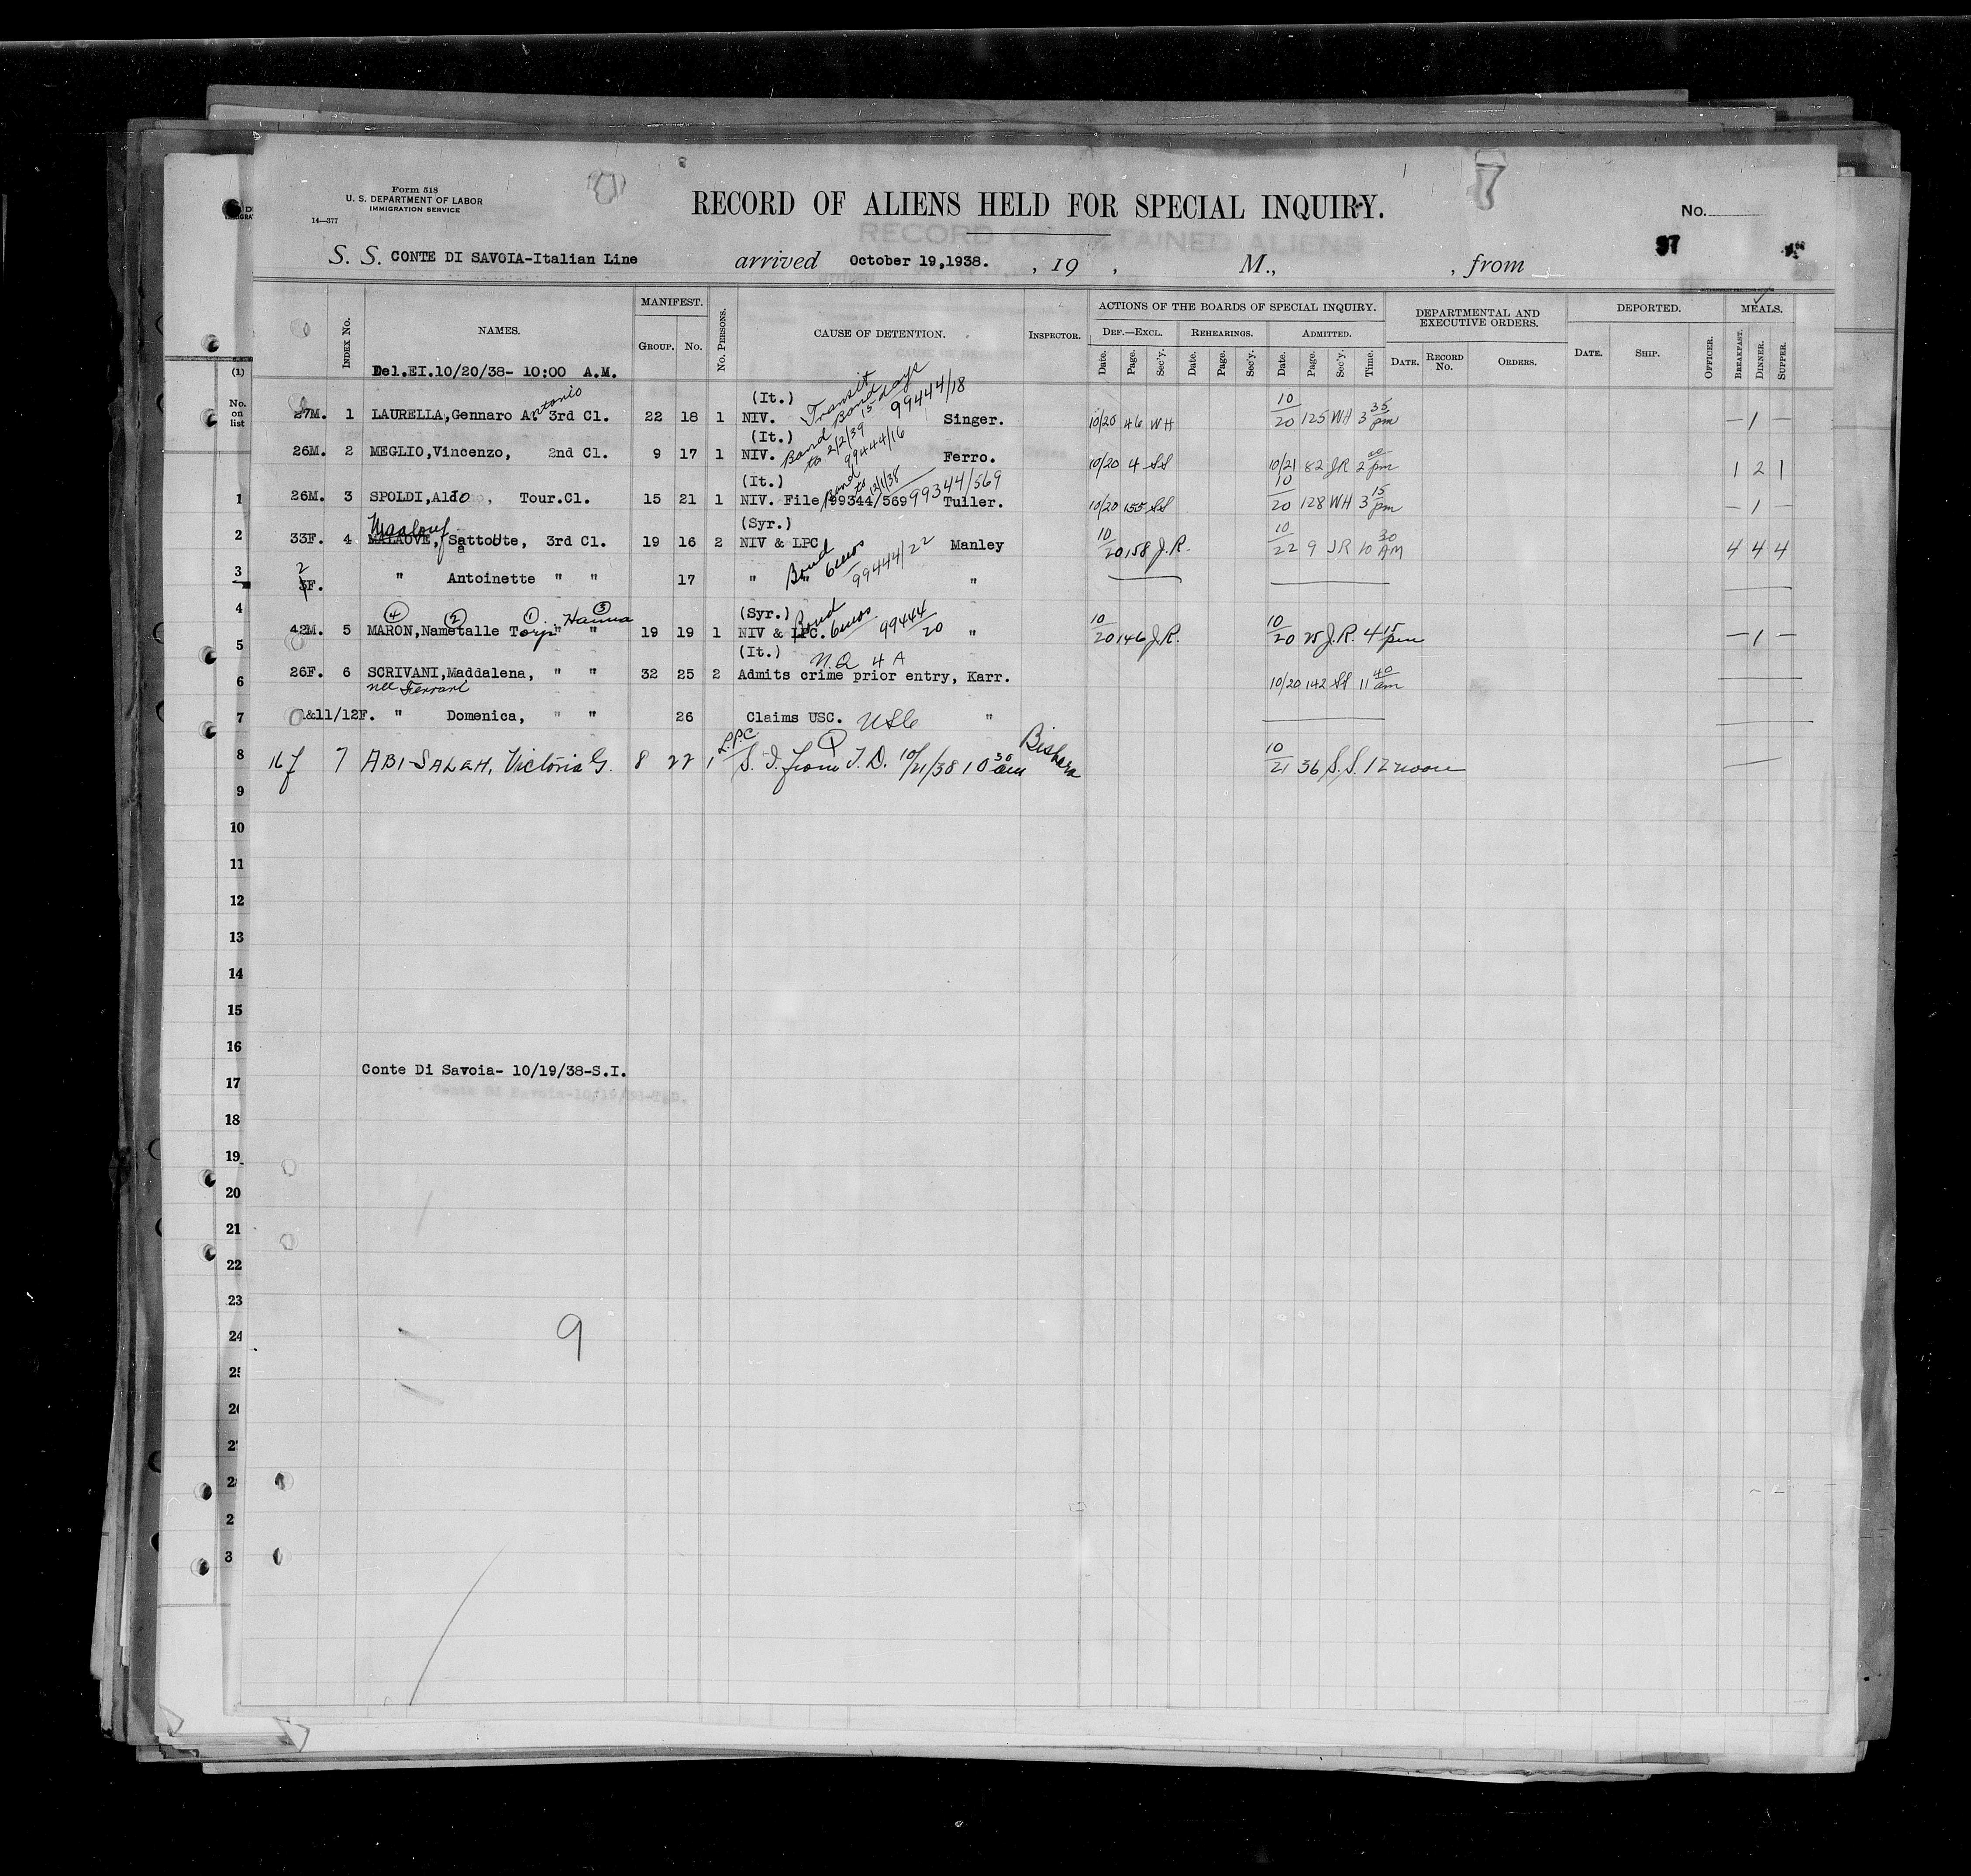 Form 518
U. S. DEPARTMENT OF LABOR
IMMIGRATION SERVICE
14—377
RECORD OF ALIENS HELD FOR SPECIAL INQUIRY.
No.
RECORD OF DETAINED ALIENS
97
S. S. CONTE DI SAVOIA-Italian Line arrived October 19,1938. , 19 , M., , from
INDEX No. NAMES. MANIFEST. GROUP. No. No. PERSONS. CAUSE OF DETENTION. INSPECTOR. ACTIONS OF THE BOARDS OF SPECIAL INQUIRY. DEF.—EXCL. REHEARINGS. ADMITTED. DEPARTMENTAL AND EXECUTIVE ORDERS. DEPORTED. MEALS.
Date. Page. Sec'y. Date. Page. Sec'y. Date. Page. Sec'y. Time. DATE. RECORD No. ORDERS. DATE. SHIP. OFFICER. BREAKFAST. DINNER. SUPPER.
(1)
No. on list
Del.EI.10/20/38- 10:00 A.M.
27M. 1 LAURELLA,Gennaro An Antonio 3rd Cl. 22 18 1 (It.) NIV. Transit Bond 15 days 99444/18 Singer. 10/20 46 WH 10/20 125 WH 3 35 pm — 1 —
26M. 2 MEGLIO,Vincenzo, 2nd Cl. 9 17 1 (It.) NIV. Bond to 2/2/39 99444/16 Ferro. 10/20 4 SS 10/21 82 JR 2 00 pm 1 2 1
26M. 3 SPOLDI,Aldo, Tour.Cl. 15 21 1 (It.) NIV. File 99344/569 Bond to 12/1/38 99344/569 Tuller. 10/20 155 SS 10/20 128 WH 3 15 pm — 1 —
33F. 4 MALAOVE, Maalouf Sattoute, 3rd Cl. 19 16 2 (Syr.) NIV & LPC Bond 6 mos 99444/22 Manley 10/20 158 J.R. 10/22 9 JR 10 30 AM 4 4 4
2 3F. " Antoinette " " 17 " " "
42M. 5 MARON,Nametalle Torji Hanna " " 19 19 1 (Syr.) NIV & LPC. Bond 6 mos 99444/20 " 10/20 146 J.R. 10/20 25 J.R. 4 15 pm — 1 —
④ ② ① ③
26F. 6 SCRIVANI,Maddalena, " " 32 25 2 (It.) N.Q. 4 A Admits crime prior entry, Karr. 10/20 142 SS 11 40 am
nee Ferrari
1&11/12F. " Domenica, " " 26 Claims USC. USC "
16 f 7 ABI-SALEH, Victoria G. 8 22 1 L.P.C S. I. from T. D. 10/21/38 10 30 am Bishara 10/21 36 S.S. 12 noon
1
2
3
4
5
6
7
8
9
10
11
12
13
14
15
16
17
18
19
20
21
22
23
24
Conte Di Savoia- 10/19/38-S.I.
Conte Di Savoia-10/19/38-T.D.
9